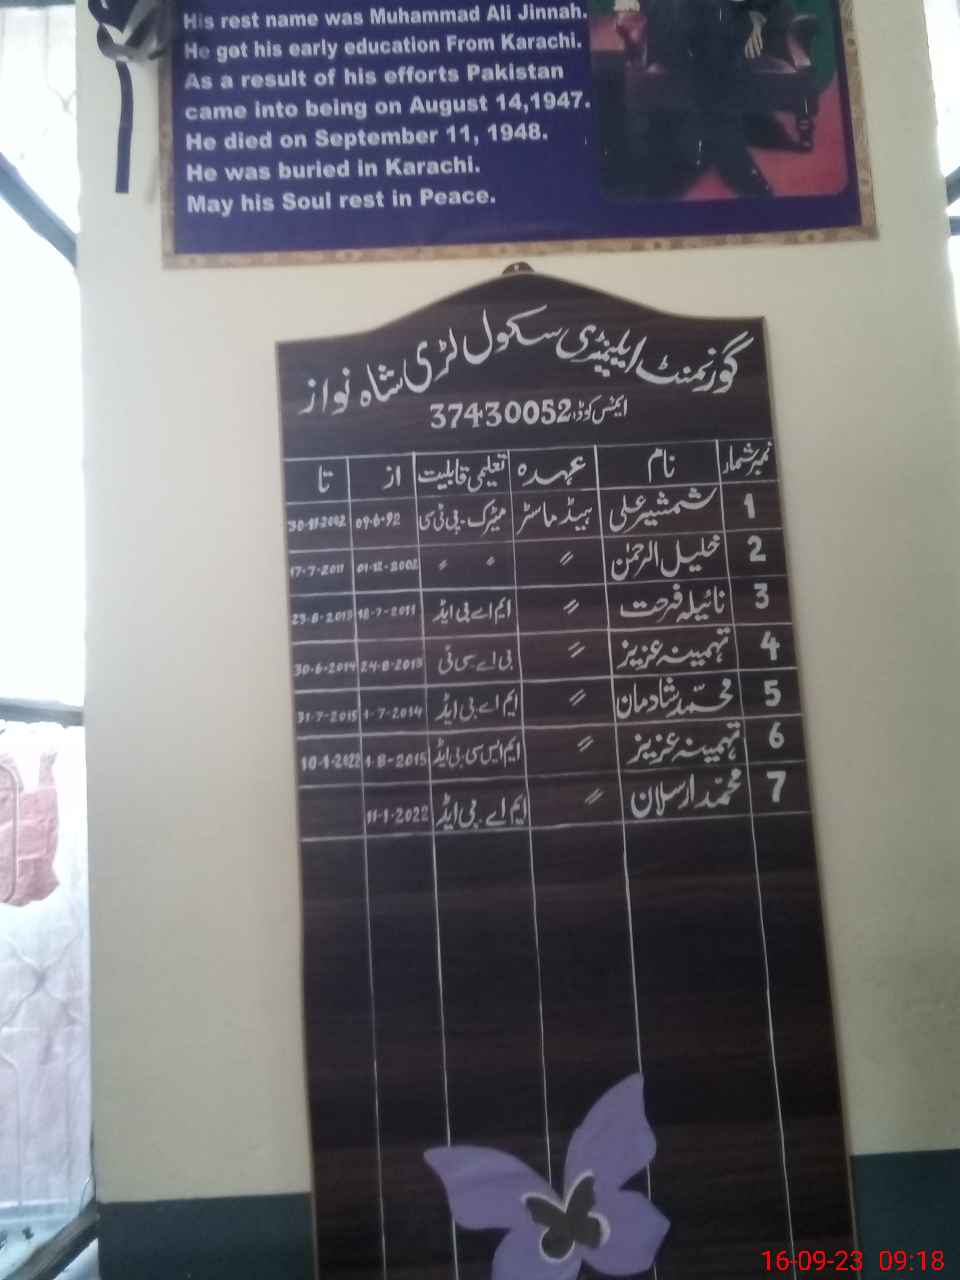 His rest name was Muhammad Ali Jinnah.
He got his early education From Karachi.
As a result of his efforts Pakistan
came into being on August 14,1947.
He died on September 11, 1948.
He was buried in Karachi.
May his Soul rest in Peace.
گورنمنٹ ایلیمنٹری سکول لڑی شاہ نواز
ایمس کوڈ: 37430052
نمبر شمار نام عہدہ تعلیمی قابلیت از تا
1 شمشیر علی ہیڈ ماسٹر میٹرک-پی ٹی سی 09-6-92 30-11-2002
2 خلیل الرحمٰن 〃 〃 〃 01-12-2002 17-7-2011
3 نائیلہ فرحت 〃 ایم اے بی ایڈ 18-7-2011 23-8-2013
4 تہمینہ عزیز 〃 بی اے سی ٹی 24-8-2013 30-6-2014
5 محمد شادمان 〃 ایم اے بی ایڈ 1-7-2014 31-7-2015
6 تہمینہ عزیز 〃 ایم ایس سی بی ایڈ 1-8-2015 10-1-2022
7 محمد ارسلان 〃 ایم اے بی ایڈ 11-1-2022
16-09-23 09:18